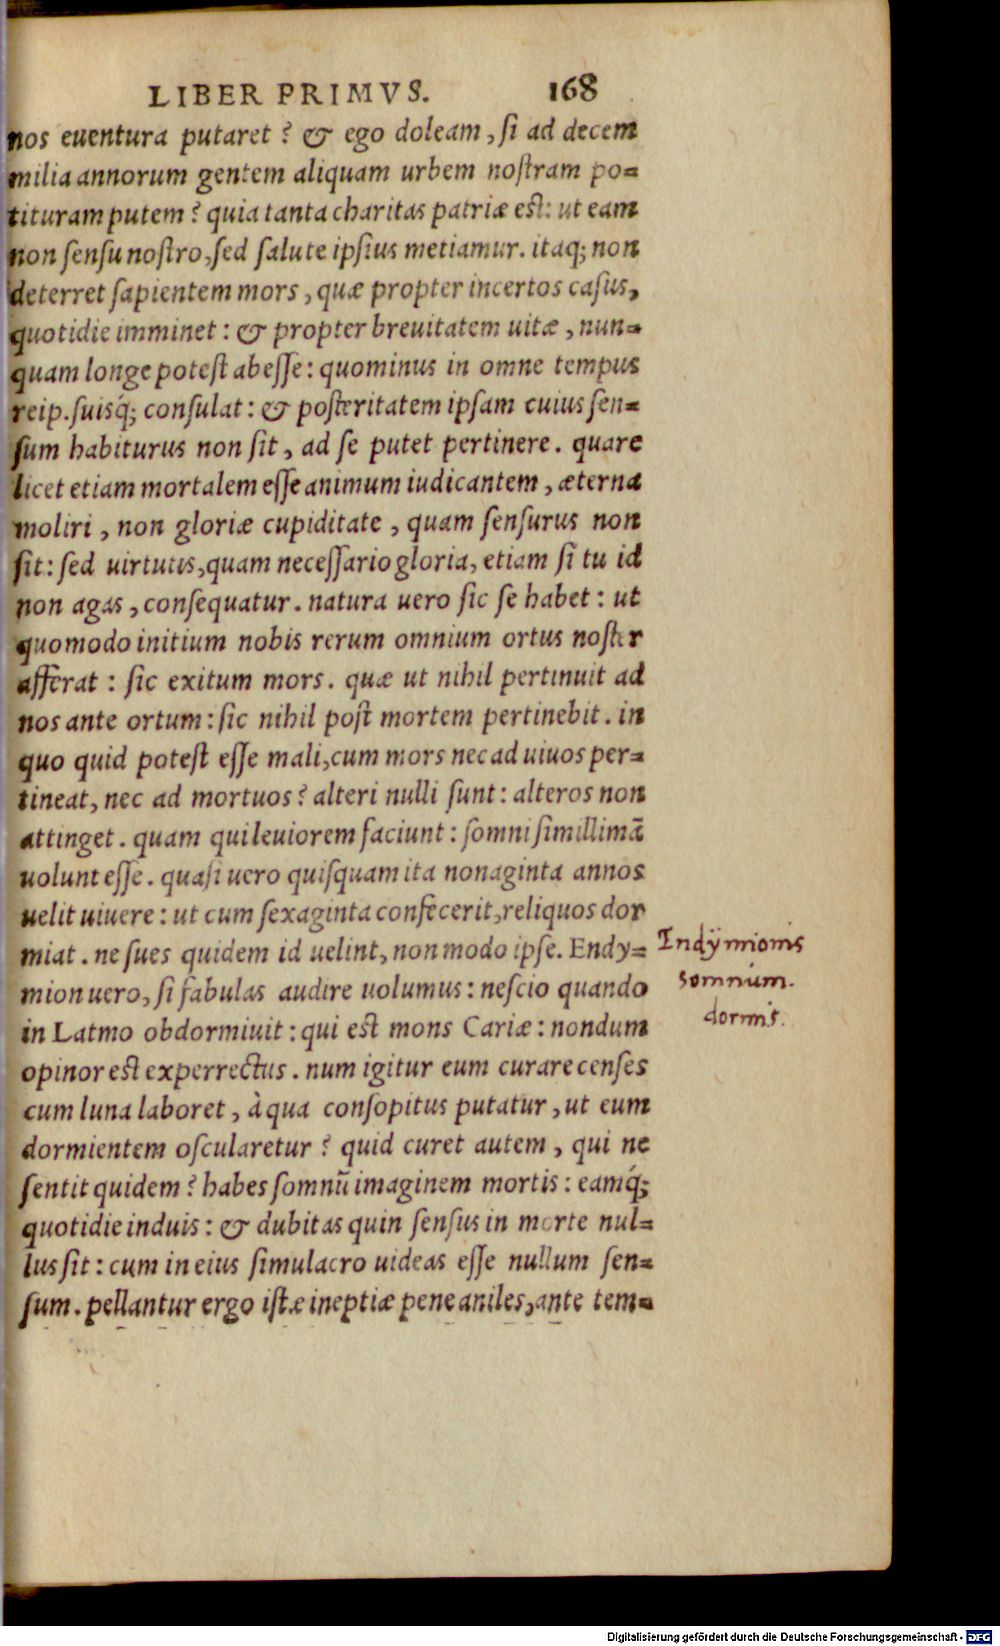 LIBER PRIMVS. 168
nos euentura putaret? & ego doleam, ſi ad decem
milia annorum gentem aliquam urbem noſtram po-
tituram putem? quia tanta charitas patriæ eſt: ut eam
non ſenſu noſtro, ſed ſalute ipſius metiamur. itaq; non
deterret ſapientem mors, quæ propter incertos caſus,
quotidie imminet: & propter breuitatem uitæ, nun-
quam longe poteſt abeſſe: quominus in omne tempus
reip. ſuisq́; conſulat: & poſteritatem ipſam cuius ſen-
ſum habiturus non ſit, ad ſe putet pertinere. quare
licet etiam mortalem eſſe animum iudicantem, æterna
moliri, non gloriæ cupiditate, quam ſenſurus non
ſit: ſed uirtutis, quam neceſſario gloria, etiam ſi tu id
non agas, conſequatur. natura uero ſic ſe habet: ut
quomodo initium nobis rerum omnium ortus noſter
afferat: ſic exitum mors. quæ ut nihil pertinuit ad
nos ante ortum: ſic nihil poſt mortem pertinebit. in
quo quid poteſt eſſe mali, cum mors nec ad uiuos per-
tineat, nec ad mortuos? alteri nulli ſunt: alteros non
attinget. quam qui leuiorem faciunt: ſomni ſimillimã
uolunt eſſe. quaſi uero quiſquam ita nonaginta annos
uelit uiuere: ut cum ſexaginta confecerit, reliquos dor
miat. ne ſues quidem id uelint, non modo ipſe. Endy-
mion uero, ſi fabulas audire uolumus: neſcio quando
in Latmo obdormiuit: qui eſt mons Cariæ: nondum
opinor eſt experrectus. num igitur eum curare cenſes
cum luna laboret, à qua conſopitus putatur, ut eum
dormientem oſcularetur? quid curet autem, qui ne
ſentit quidem? habes ſomnũ imaginem mortis: eamq́;
quotidie induis: & dubitas quin ſenſus in morte nul-
lus ſit: cum in eius ſimulacro uideas eſſe nullum ſen-
ſum. pellantur ergo iſtæ ineptiæ pene aniles, ante tem-
Indÿmionis
somnium.
dormit.
Digitalisierung gefördert durch die Deutsche Forschungsgemeinschaft - DFG